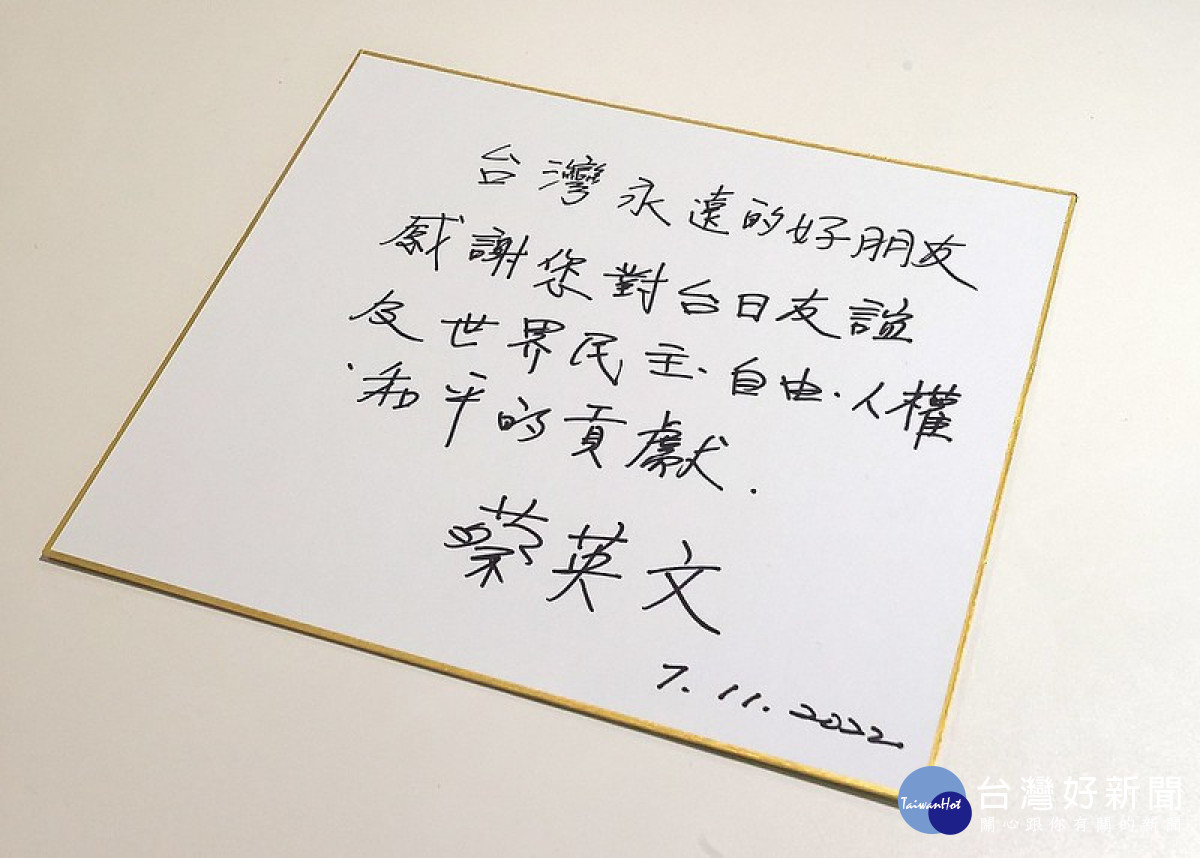 台灣永遠的好朋友
感謝您對台日友誼
及世界民主、自由、人權
、和平的貢獻.
蔡英文
7.11.2022
TaiwanHot
台灣好新聞
關心跟你有關的新聞